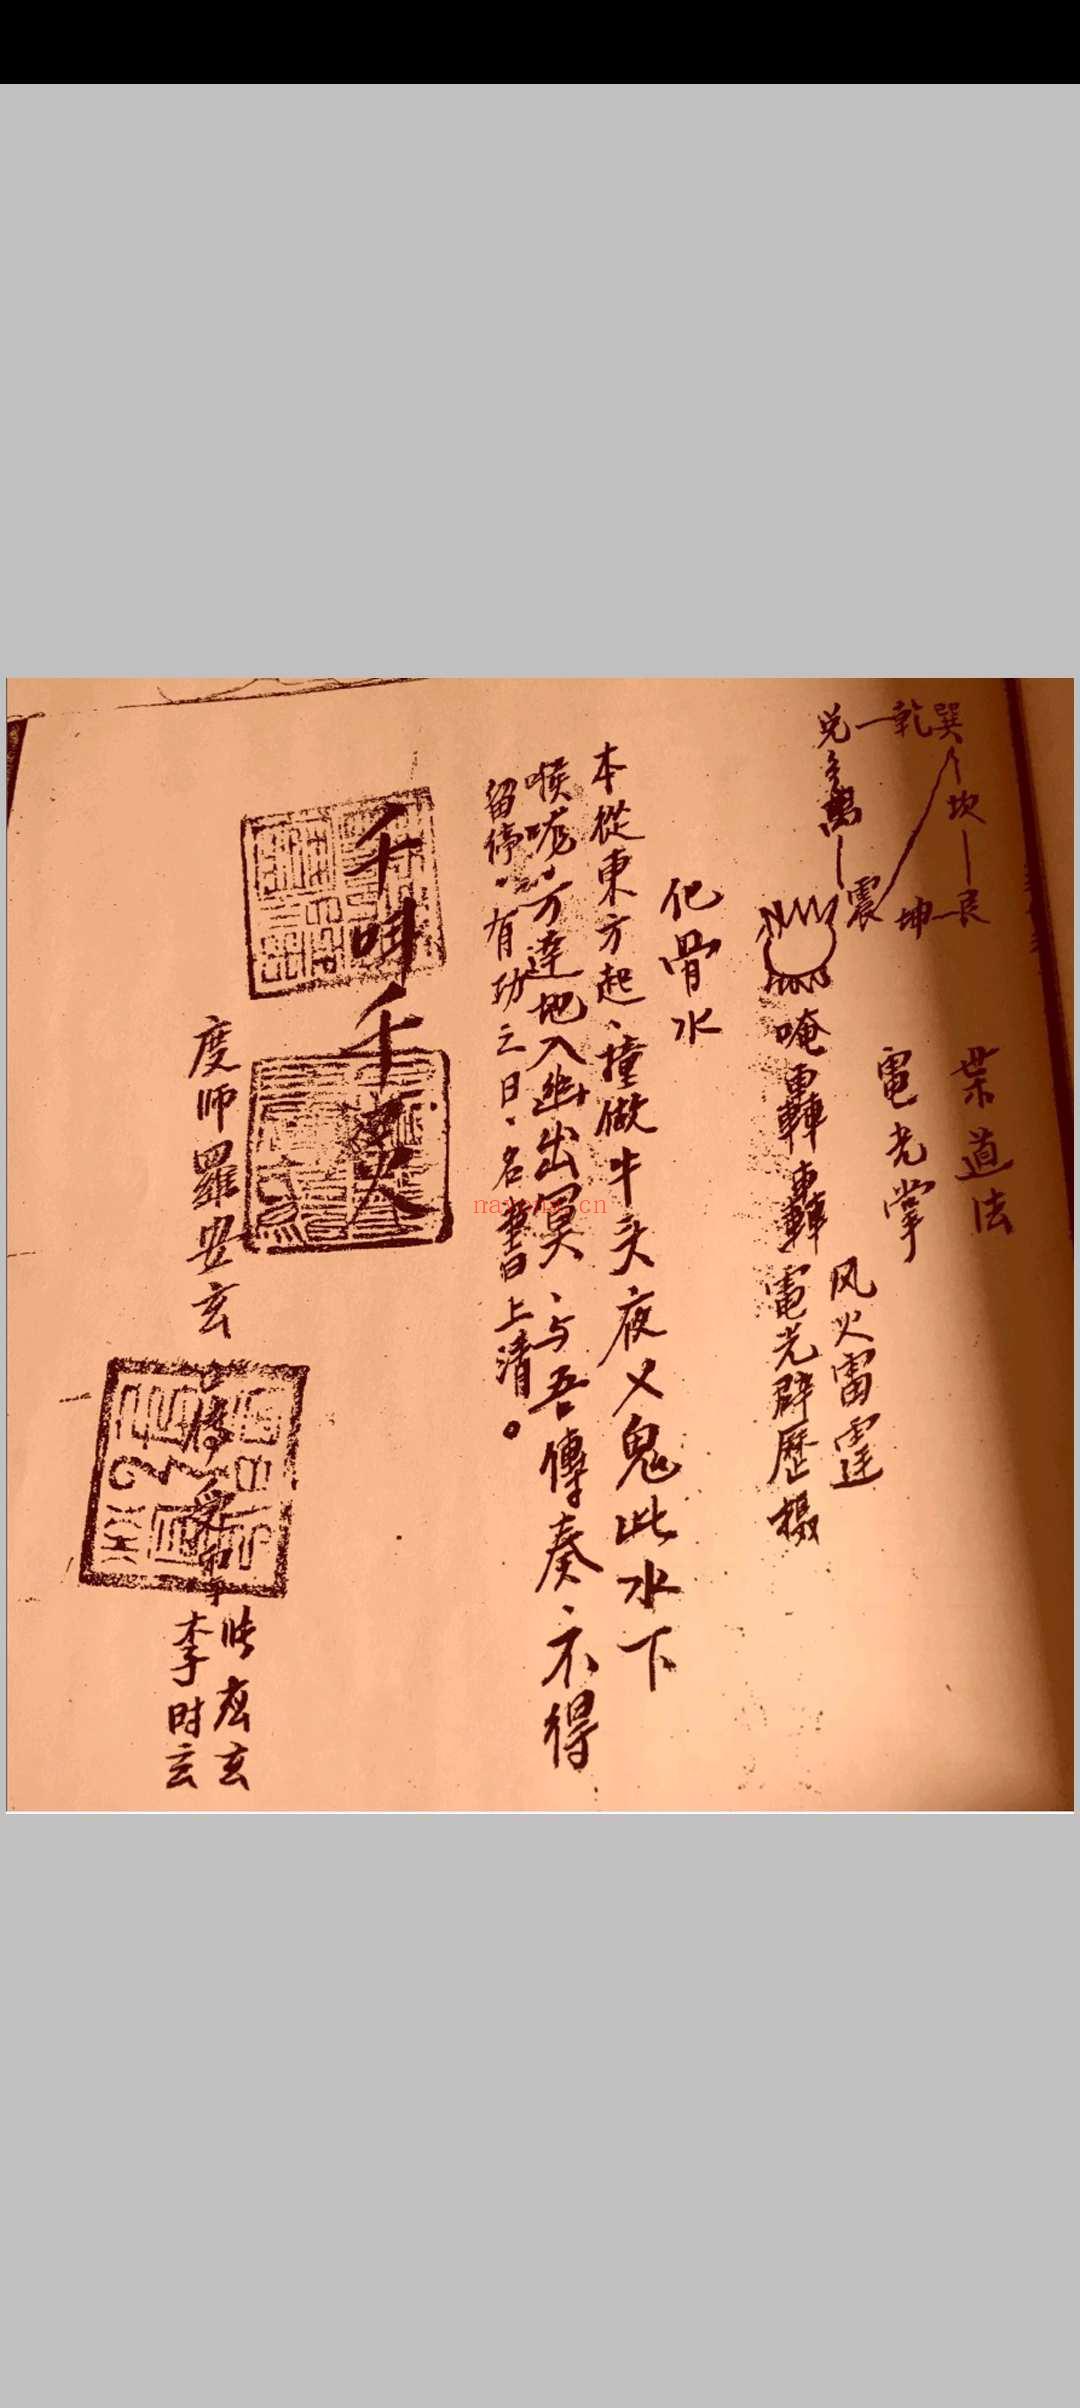 葉道法
電光掌
风火雷霆
巽
乾
兑
坎
艮
坤
震
離
唵轟轟電光辟歷摄
化骨水
本從東方起、撞做牛头夜叉鬼此水下
喉咙、万達地入幽出冥、与吾傳奏、不得
留停、有功之日、名書上清。
千
千
度师羅
玄
傳
受
玄
李时玄
nayona.cn